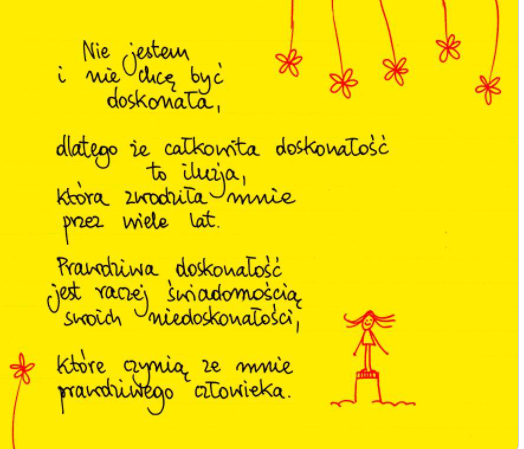 Nie jestem
i nie chcę być
doskonała,
dlatego że całkowita doskonałość
to iluzja,
która zwodziła mnie
przez wiele lat.
Prawdziwa doskonałość
jest raczej świadomością
swoich niedoskonałości,
które czynią ze mnie
prawdziwego człowieka.